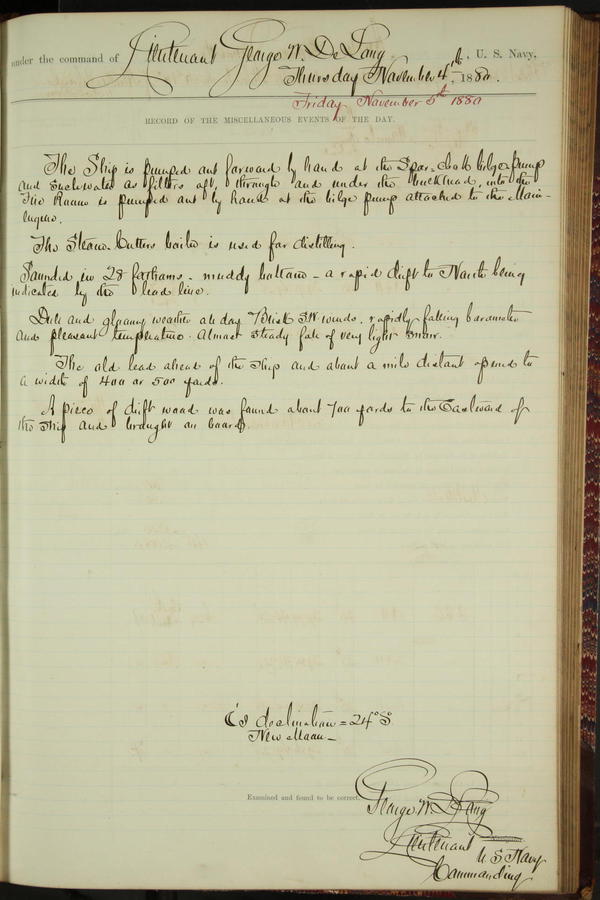 under the command of Lieutenant George W. De Long, U. S. Navy,
Thursday November 4th, 1880.
Friday November 5th 1880
RECORD OF THE MISCELLANEOUS EVENTS OF THE DAY.
The Ship is pumped out forward by hand at the Spar-deck bilge pump
and such water as filters aft, through and under the bulkhead, into the
Fire Room is pumped out by hand at the bilge pump attached to the Main-
engine.
The Steam Cutters boiler is used for distilling.
Sounded in 28 fathoms - muddy bottom - a rapid drift to North being
indicated by the lead line.
Dull and gloomy weather all day. Brisk SW winds, rapidly falling barometer
and pleasant temperature. Almost steady fall of very light snow.
The old lead ahead of the ship and about a mile distant opened to
a width of 400 or 500 yards.
A piece of drift wood was found about 700 yards to the Eastward of
the ship and brought on board.
☾'s declination = 24° S.
New Moon -
Examined and found to be correct.
George W. De Long
Lieutenant U S Navy
Commanding